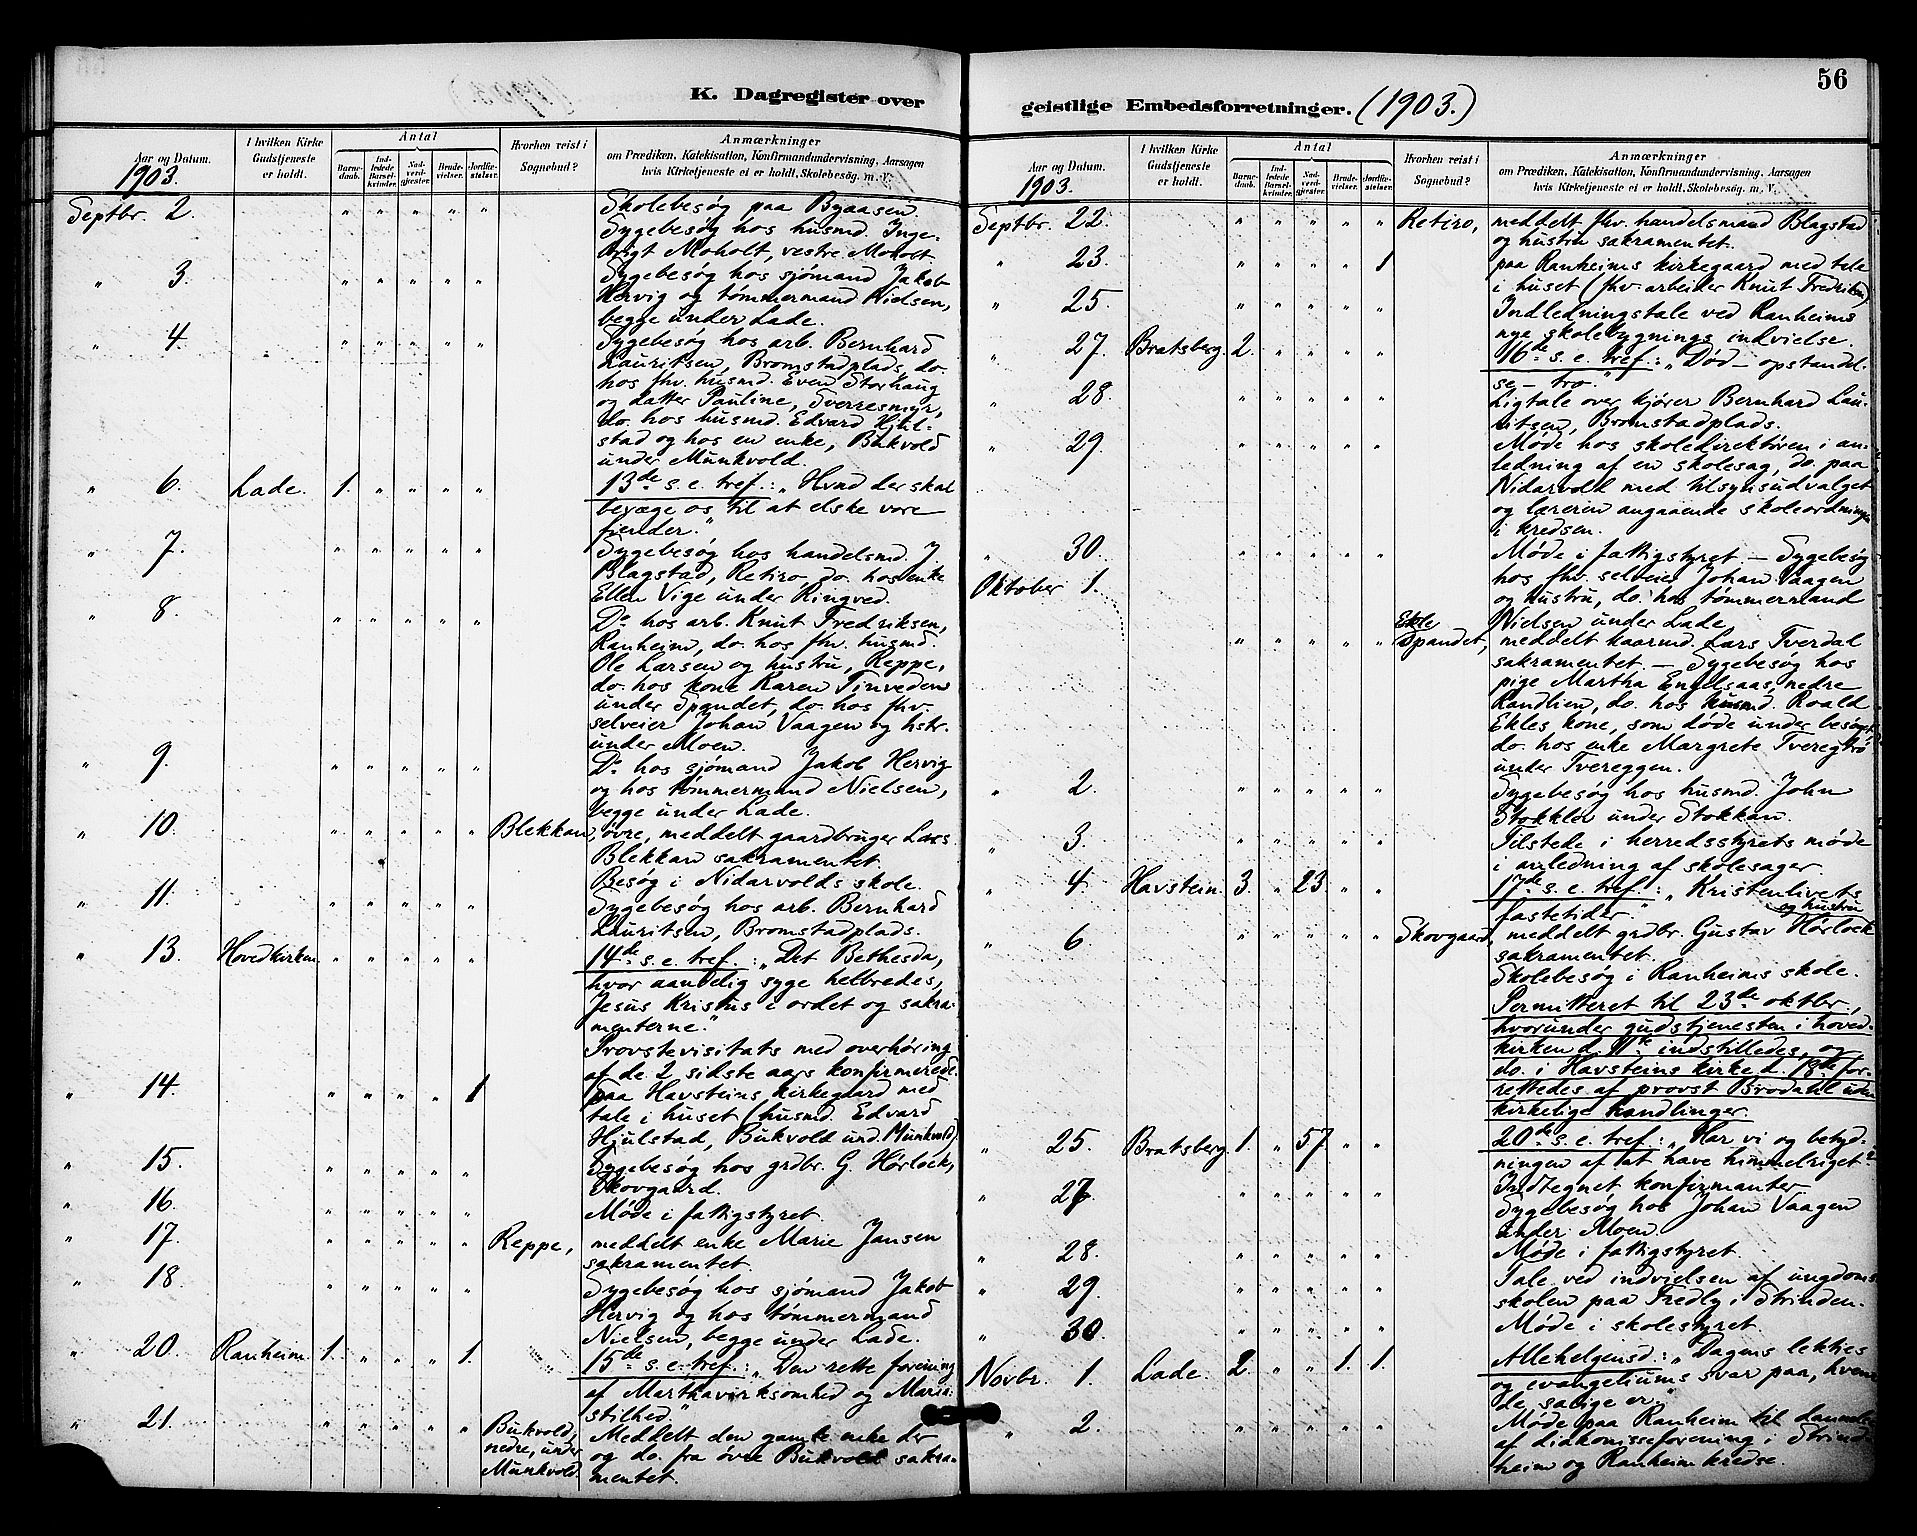 K. Dagregister over
Aar og Datum.
1903.
I hvilken Kirke Gudstjeneste er holdt.
Antal
Barnedaab.
Indledede Barselkvinder.
Nadverdgjester.
Brudevielser.
Jordfæstelser.
Hvorhen reist i Sognebud?
Anmærkninger
om Prædiken, Katekisation, Konfirmandundervisning, Aarsagen
hvis Kirketjeneste ei er holdt, Skolebesøg. m. V.
Septbr. 2. " " " " " Skolebesøg paa Byaasen.
Sygebesøg hos husmd. Inge-
brigt Moholt, vestre Moholt.
" 3. " " " " " Sygebesøg hos sjømand Jakob
Hervig og tømmermand Nielsen,
begge under Lade.
" 4. " " " " " Sygebesøg hos arb. Bernhard
Lauritsen, Bromstadplads, do.
hos fhv. husmd. Even Storhaug
og datter Pauline, Sverresmyr,
do. hos husmd. Edvard Hjul-
stad og hos en enke, Bukvold
under Munkvold.
" 6. Lade. 1. " " " " 13de s. e. tref.: „Hvad der skal
bevæge os til at elske vore
fiender."
" 7. " " " " " Sygebesøg hos handelsmd. J.
Blagstad, Retiro, do. hos enke
Ellen Vige under Ringved.
" 8. " " " " " Do. hos arb. Knut Fredriksen,
Ranheim, do. hos fhv. husmd.
Ole Larsen og hustru, Reppe,
do. hos kone Karen Tinveden
under Spandet, do. hos fhv.
selveier Johan Vaagen og hstr.
under Moen.
" 9. " " " " " Do. hos sjømand Jakob Hervig
og hos tømmermand Nielsen,
begge under Lade.
" 10. " " " " " Blekkan, øvre, meddelt gaardbruger Lars
Blekkan sakramentet.
Besøg i Nidarvolds skole.
" 11. " " " " " Sygebesøg hos arb. Bernhard
Lauritsen, Bromstadplads.
" 13. Hovedkirken " " " " " 14de s. e. tref.: „Det Bethesda,
hvor aandelig syge helbredes,
Jesus Kristus i ordet og sakra-
menterne."
Provstevisitats med overhøring
af de 2 sidste aars konfirmerede.
" 14. " " " " 1 Paa Havsteins kirkegaard med
tale i huset (husmd. Edvard
Hjulstad, Bukvold und. Munkvold).
" 15. " " " " " Sygebesøg hos grdbr. G. Hørlock,
Skovgaard.
" 16. " " " " " Møde i fattigstyret.
" 17. " " " " " Reppe, meddelt enke Marie Jansen
sakramentet.
" 18 " " " " " Sygebesøg hos sjømand Jakob
Hervig og hos tømmermand
Nielsen, begge under Lade.
" 20. Ranheim. 1. " " " 1. 15de s. e. tref.: „Den rette forening
af Marthavirksomhed og Maria-
stilhed."
" 21. " " " " " Bukvold, nedre, under Munkvold. Meddelt den gamle enke der
og do. fra øvre Bukvold sakra-
mentet.
56
geistlige Embedsforretninger. (1903.)
Aar og Datum.
1903.
I hvilken Kirke Gudstjeneste er holdt.
Antal
Barnedaab.
Indledede Barselkvinder.
Nadverdgjester.
Brudevielser.
Jordfæstelser.
Hvorhen reist i Sognebud?
Anmærkninger
om Prædiken, Katekisation, Konfirmandundervisning, Aarsagen
hvis Kirketjeneste ei er holdt, Skolebesøg. m. V.
Septbr. 22. " " " " " Retiro, meddelt fhv. handelsmand Blagstad
og hustru sakramentet.
" 23. " " " " 1 paa Ranheims kirkegaard med tale
i huset (fhv. arbeider Knut Fredriksen)
" 25. " " " " " Indledningstale ved Ranheims
nye skolebygnings indvielse.
" 27. Bratsberg. 2. " " " " 16de s. e. tref.: „Død – opstandel-
se – tro."
" 28. " " " " " Ligtale over kjører Bernhard Lau-
ritsen, Bromstadplads.
" 29. " " " " " Møde hos skoledirektøren i an-
ledning af en skolesag, do. paa
Nidarvold med tilsynsudvalget
og læreren angaaende skoleordningen
i kredsen.
" 30. " " " " " Møde i fattigstyret – Sygebesøg
hos fhv. selveier Johan Vaagen
og hustru, do. hos tømmermand
Nielsen under Lade.
Oktober 1. " " " " " Ekle Spandet, meddelt kaarmd. Lars Tverdal
sakramentet. – Sygebesøg hos
pige Martha Engelsaas, nedre
Randlien, do. hos husmd. Roald
Ekles kone, som døde under besøget,
do. hos enke Margrete Tveregtrø
under Tvereggen.
" 2. " " " " " Sygebesøg hos husmd. John
Stokklev under Stokkan.
" 3. " " " " " Tilstede i herredsstyrets møde
i anledning af skolesager.
" 4. Havstein. 3. " 23. " " 17de s. e. tref.: „Kristenlivets
fastetider."
" 6. " " " " " Skovgaard, meddelt grdbr. Gustav Hørlock og hustru
sakramentet.
Skolebesøg i Ranheims skole.
Permitteret til 23de oktbr.,
hvorunder gudstjenesten i hoved-
kirken d. 11te indstilledes, og
do. i Havsteins kirke d. 18de for-
rettedes af provst Brodahl uden
kirkelige handlinger.
" 25. Bratsberg. 1. " 57. " " 20de s. e. tref.: „Har vi og betyd-
ningen af at have himmelriget?"
" 27. " " " " " Indtegnet konfirmanter
Sygebesøg hos Johan Vaagen
under Moen.
" 28. " " " " " Møde i fattigstyret.
" 29. " " " " " Tale ved indvielsen af ungdoms-
skolen paa Fredly i Strinden.
" 30 " " " " " Møde i skolestyret.
Novbr. 1. Lade. 2. " " 1. 1. Allehelgensd.: „Dagens lekties
og evangeliums svar paa, hvem
de salige er."
" 2. " " " " " Møde paa Ranheim til dannelse
af diakonisseforening i Strind-
heim og Ranheim kredse.